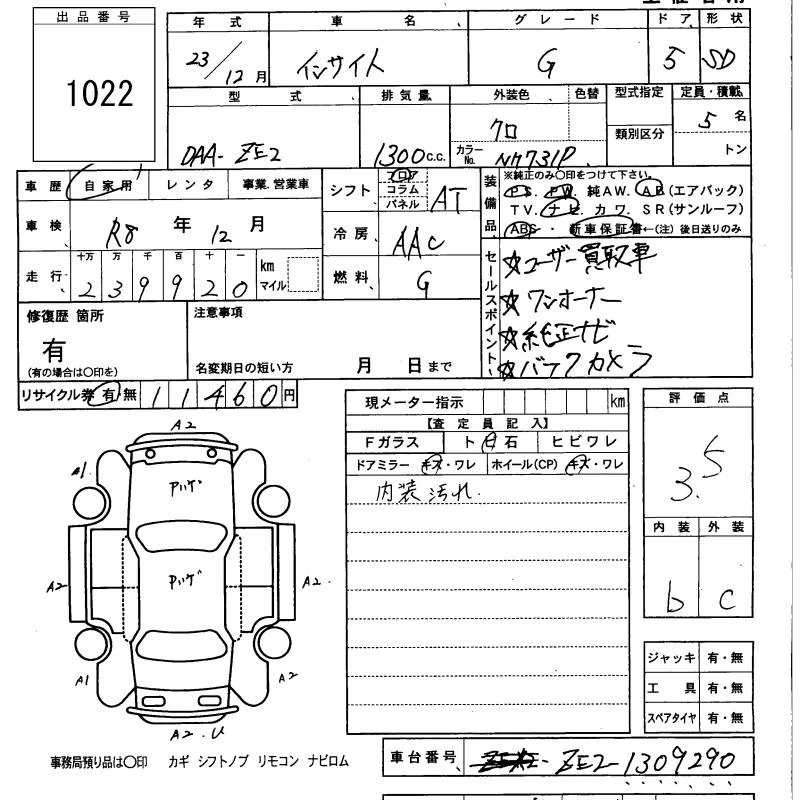 出品番号
1022
年式 車名 グレード ドア 形状
23/12月 インサイト G 5 SD
型式 排気量 外装色 色替 型式指定 定員・積載
DAA-ZE2 1300c.c. クロ カラーNo. NH731P 類別区分 5名 トン
車歴 自家用 レンタ 事業.営業車
車検 R8年12月
走行 十万 万 千 百 十 一 km マイル
239920
シフト フロア コラム パネル AT
冷房 AAC
燃料 G
装備品 ※純正のみ〇印をつけて下さい。
PS. PW. 純AW. AB(エアバック)
TV. ナビ カワ. SR(サンルーフ)
ABS・新車保証書←(注)後日送りのみ
セールスポイント
☆ユーザー買取車
☆ワンオーナー
☆純正ナビ
☆バックカメラ
修復歴 箇所
有
(有の場合は〇印を)
注意事項
名変期日の短い方 月 日まで
リサイクル券 有・無 11460円
現メーター指示 km
【査定員記入】
Fガラス ト 日 石 ヒビワレ
ドアミラー キズ・ワレ ホイール(CP) キズ・ワレ
内装汚れ.
評価点
3.5
内装 外装
b c
A2
A1
Pハゲ
Pハゲ
A2 A2
A1 A2
A2.U
ジャッキ 有・無
工具 有・無
スペアタイヤ 有・無
事務局預り品は〇印 カギ シフトノブ リモコン ナビロム
車台番号 ZE2-1309290